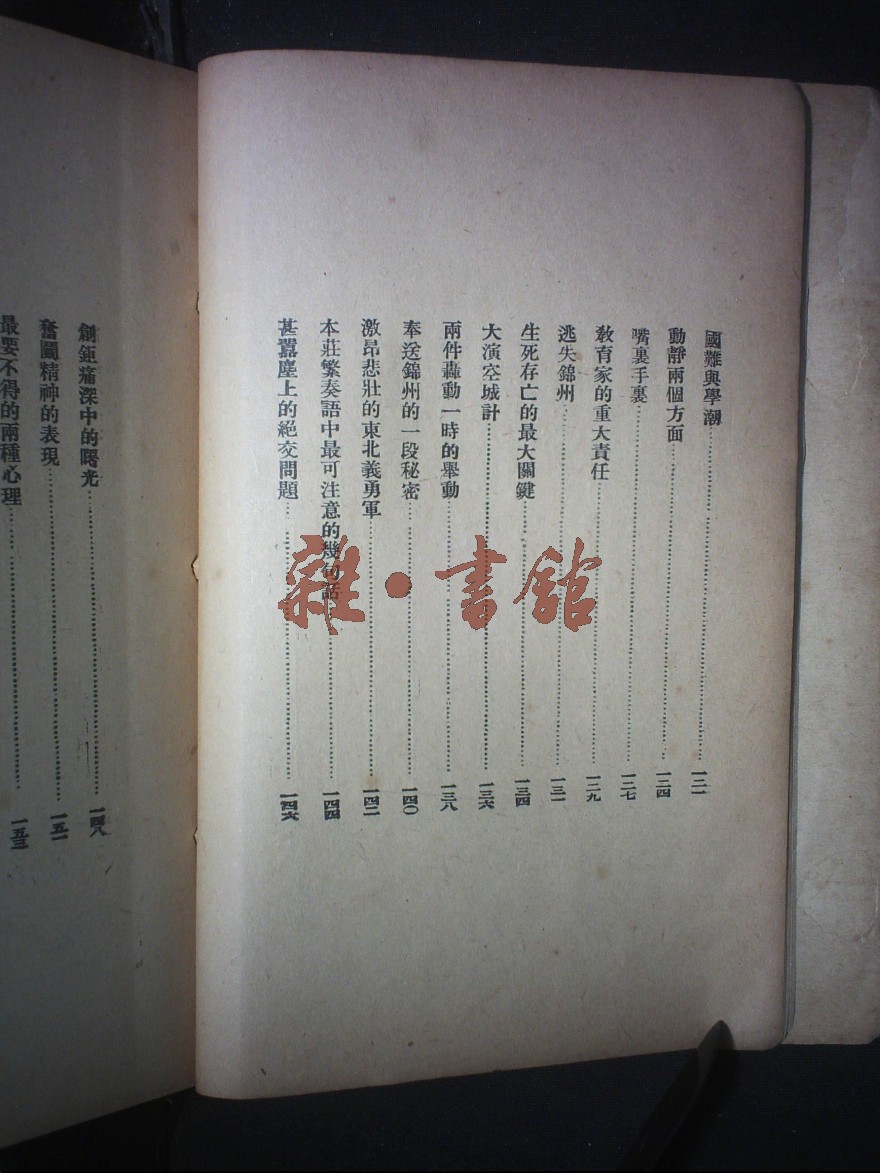 國難與學潮……………………一二一
動靜兩個方面……………………一二四
嘴裏手裏……………………一二七
教育家的重大責任……………………一二九
逃失錦州……………………一三一
生死存亡的最大關鍵……………………一三四
大演空城計……………………一三六
兩件轟動一時的舉動……………………一三八
奉送錦州的一段秘密……………………一四〇
激昂悲壯的東北義勇軍……………………一四二
本莊繁奏語中最可注意的幾句話……………………一四四
甚囂塵上的絕交問題……………………一四六
創鉅痛深中的曙光……………………一四八
奮鬭精神的表現……………………一五一
最要不得的兩種心理……………………一五三
雜·書館